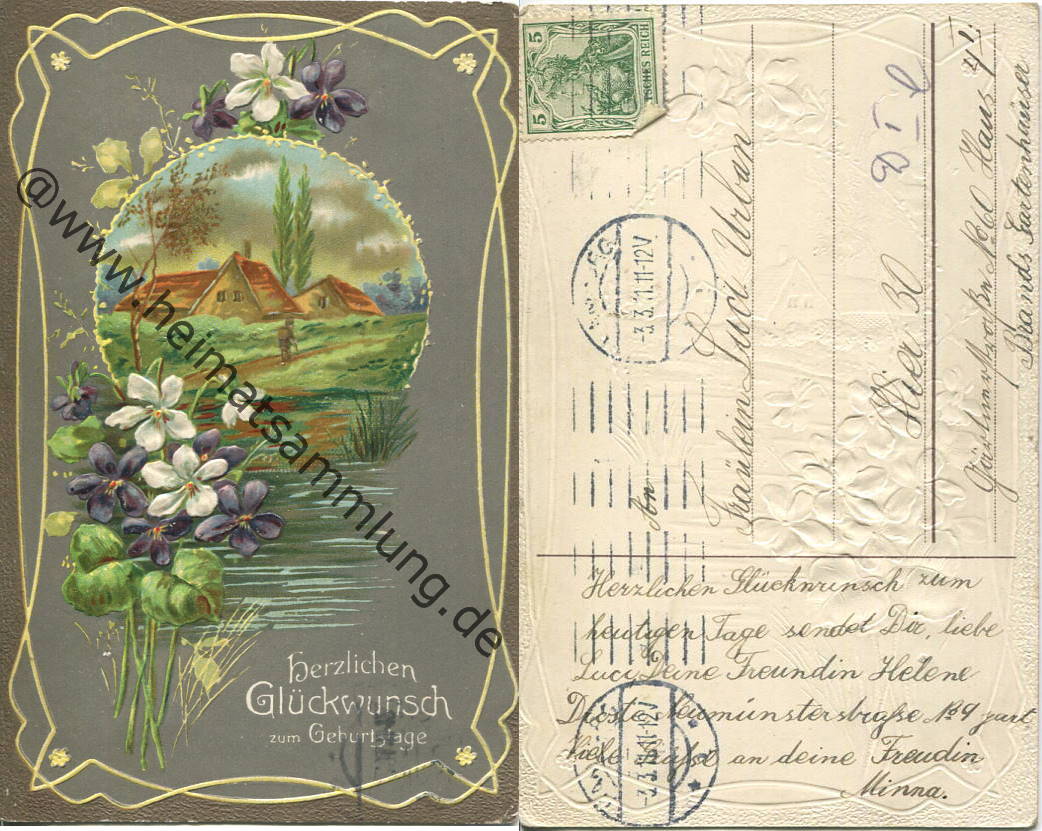 @www.heimatsammlung.de
Herzlichen
Glückwunsch
zum Geburtstage
5 5
DEUTSCHES REICH
-3.3.11.11-12V
An
Fräulein Luci Urban
Hier 30
Haus 4
Brands Gartenhäuser
Herzlichen Glückwunsch zum
heutigen Tage sendet Dir, liebe
Luci Deine Freundin Helene
Neumünsterstraße No 9 part
Viele Grüße an deine Freudin
Minna.
-3.3.11.11-12V